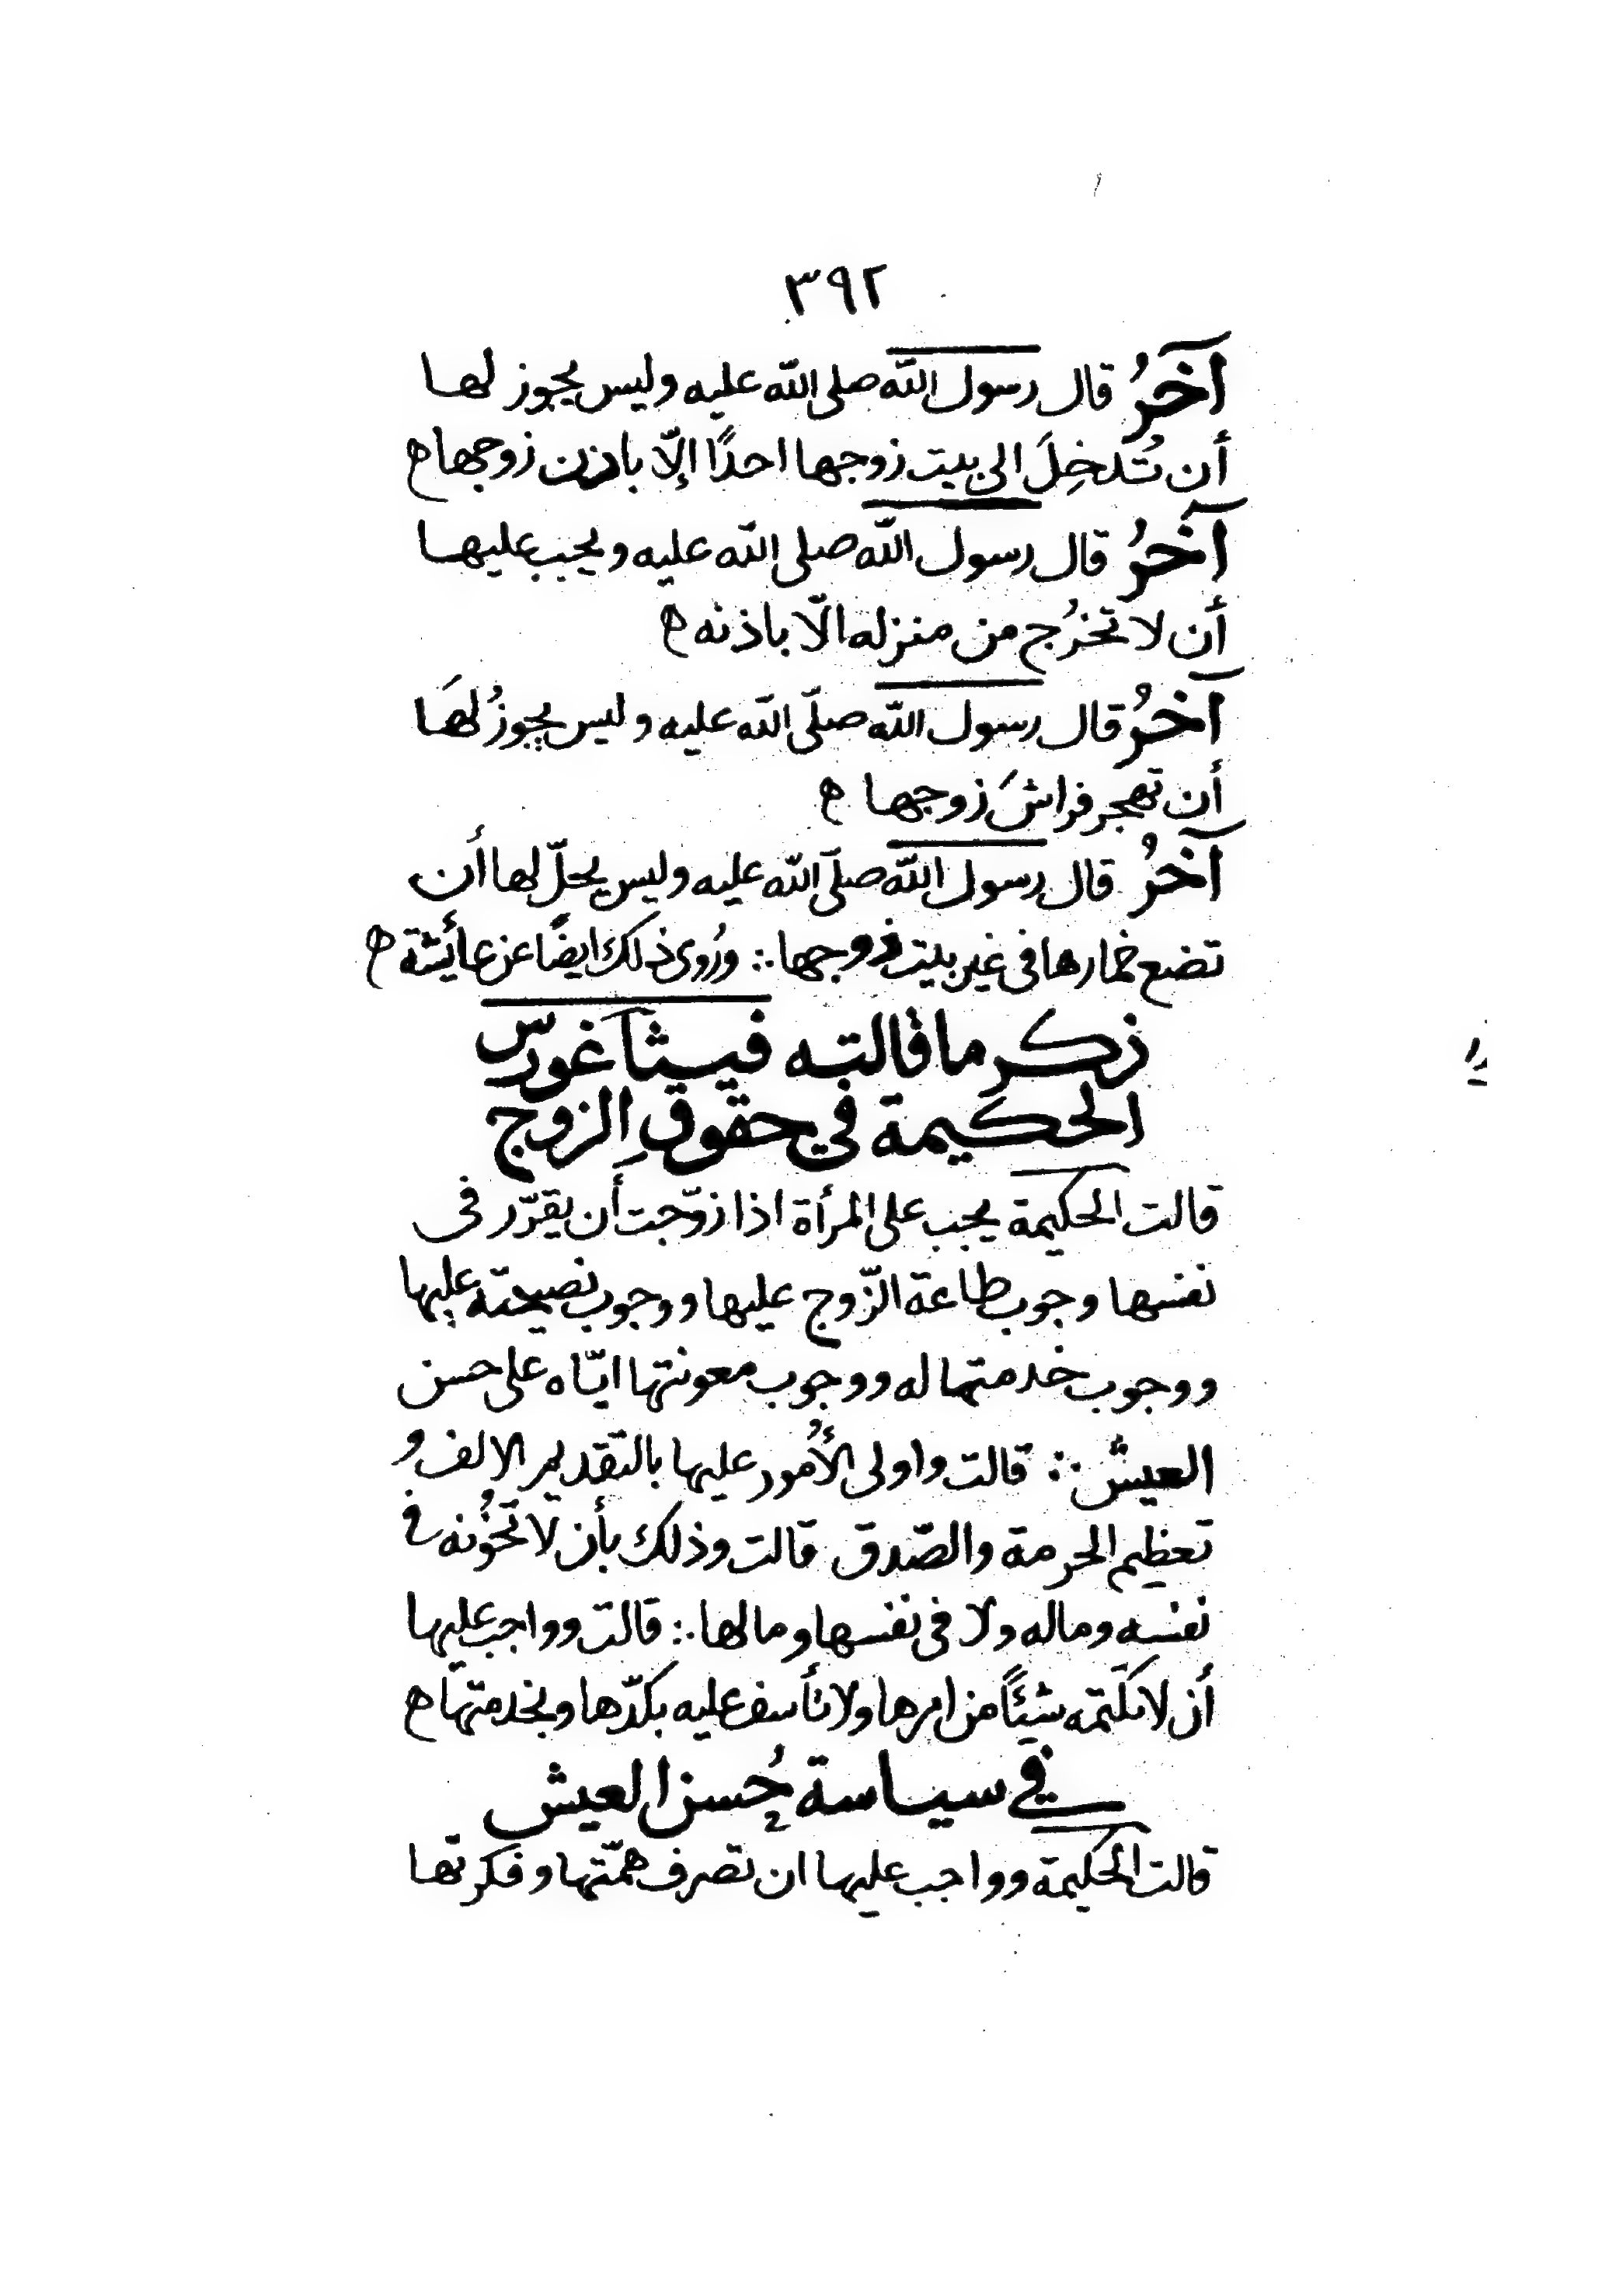 ٣٩٢
آخَرُ قال رسول الله صلى الله عليه وليس يجوز لها
أن تُدخِلَ الى بيت زوجها احدًا إلّا باذن زوجها ه
آخَرُ قال رسول الله صلى الله عليه ويجب عليها
أن لا تخرُج من منزله الّا باذنه ه
آخَرُ قال رسول الله صلّى الله عليه وليس يجوزُ لهَا
أن تهجر فراشَ زوجها ه
آخَرُ قال رسول الله صلّى الله عليه وليس يحلّ لها أن
تضع خمارها فى غير بيت زوجها ∴ ورُوى ذلك ايضًا عن عائشة ه
ذكر ما قالته فيثاغورس
الحكيمة في حقوقِ الزوج
قالت الحكيمة يجب على المرأة اذا زوّجت أن يقرّر فى
نفسها وجوب طاعة الزّوج عليها ووجوب نصيحته عليها
ووجوب خدمتها له ووجوب معونتها ايّاه على حسن
العيش ∴ قالت واولى الأُمور عليها بالتقديم الالف و
تعظيم الحرمة والصّدق قالت وذلك بأن لا تخُونه فى
نفسه وماله ولا فى نفسها ومالها ∴ قالت وواجب عليها
أن لا تكتمه شيئًا من امرها ولا تأسف عليه بكدّها وبخدمتها ه
في سياسة حُسن العيش
قالت الحكيمة وواجب عليها ان تصرف همّتها وفكرتها